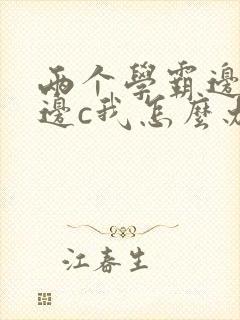 兩个學霸邊
邊c我怎麼
江春生